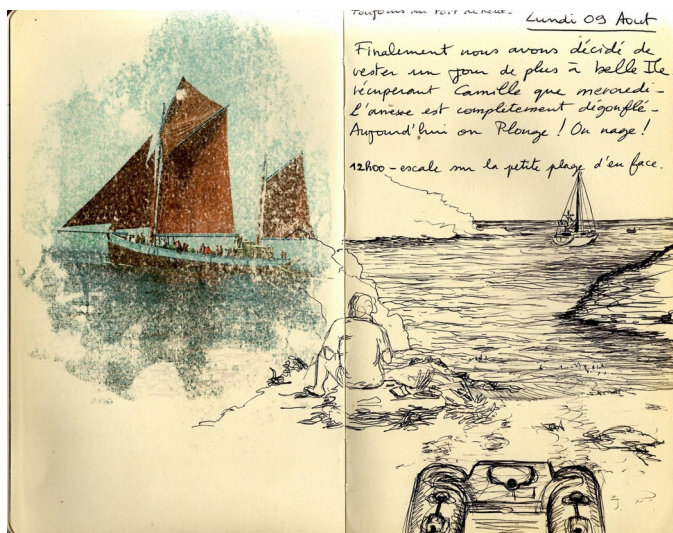 Toujours au Port de
Lundi 09 Aout
Finalement nous avons décidé de
rester un jour de plus à belle Ile
récuperant Camille que mercredi-
L'anesse est complitement dégonflé-
Aujourd'hui on Plonge ! On nage !
12h00 - escale sur la petite plage d'en face.